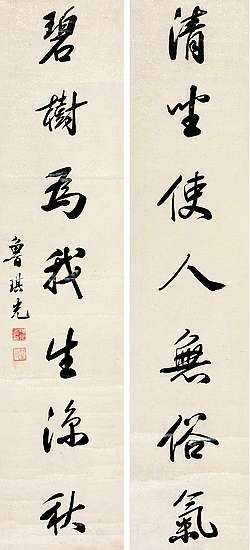 清坐使人無俗氣
碧樹為我生涼秋
魯琪光